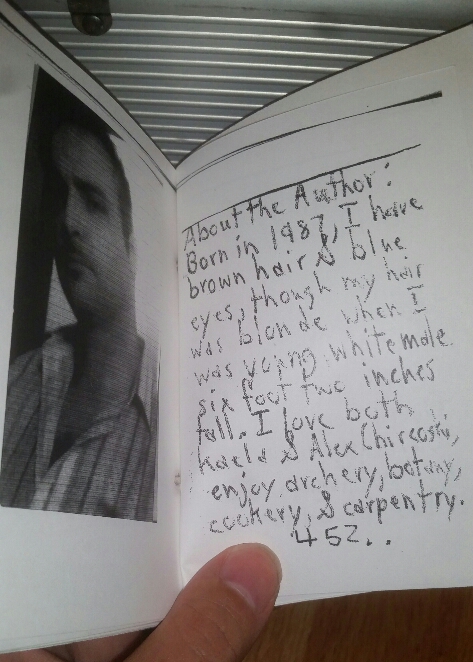 About the Author:
Born in 1987, I have
brown hair & blue
eyes, though my hair
was blonde when I
was young. white male
six foot two inches
tall. I love both
& Alex
enjoy archery, botany,
cookery, & carpentry.
452..